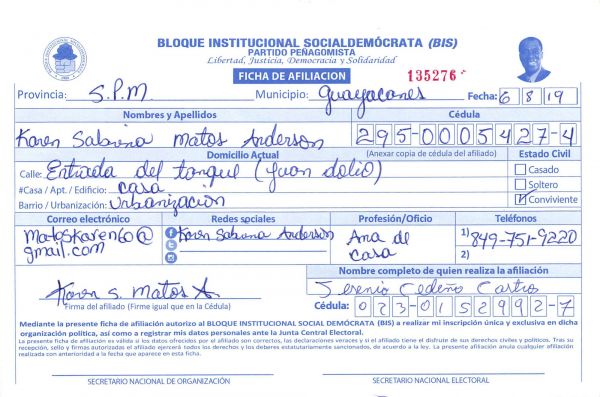 BLOQUE INSTITUCIONAL SOCIALDEMÓCRATA (BIS)
PARTIDO PEÑAGOMISTA
Libertad, Justicia, Democracia y Solidaridad
FICHA DE AFILIACION 135276
Provincia: S.P.M. Municipio: Guayacanes Fecha: 6 8 19
Nombres y Apellidos Cédula
Karen Sabrina Matos Anderson 295-0005427-4
Domicilio Actual (Anexar copia de cédula del afiliado) Estado Civil
Calle: Entrada del tanque (Juan dolio) Casado
#Casa / Apt. / Edificio: casa Soltero
Barrio / Urbanización: Urbanización Conviviente
Correo electrónico Redes sociales Profesión/Oficio Teléfonos
Matoskaren60@ Karen Sabrina Anderson Ama de 1) 849-751-9220
gmail.com casa 2)
Nombre completo de quien realiza la afiliación
Karen S. Matos A. Cedeño Castro
Firma del afiliado (Firme igual que en la Cédula) Cédula: 023-0152992-7
Mediante la presente ficha de afiliación autorizo al BLOQUE INSTITUCIONAL SOCIAL DEMÓCRATA (BIS) a realizar mi inscripción única y exclusiva en dicha
organización política, así como a registrar mis datos personales ante la Junta Central Electoral.
La presente ficha de afiliación es válida si los datos ofrecidos por el afiliado son correctos, las declaraciones veraces y si el afiliado tiene el disfrute de sus derechos civiles y políticos. Tras su
recepción, sello y firmas autorizadas el afiliado ejercerá todos los derechos y los deberes estatutariamente sancionados, de acuerdo a la ley. La presente afiliación anula cualquier afiliación
realizada con anterioridad a la fecha que aparece en esta ficha.
SECRETARIO NACIONAL DE ORGANIZACIÓN SECRETARIO NACIONAL ELECTORAL